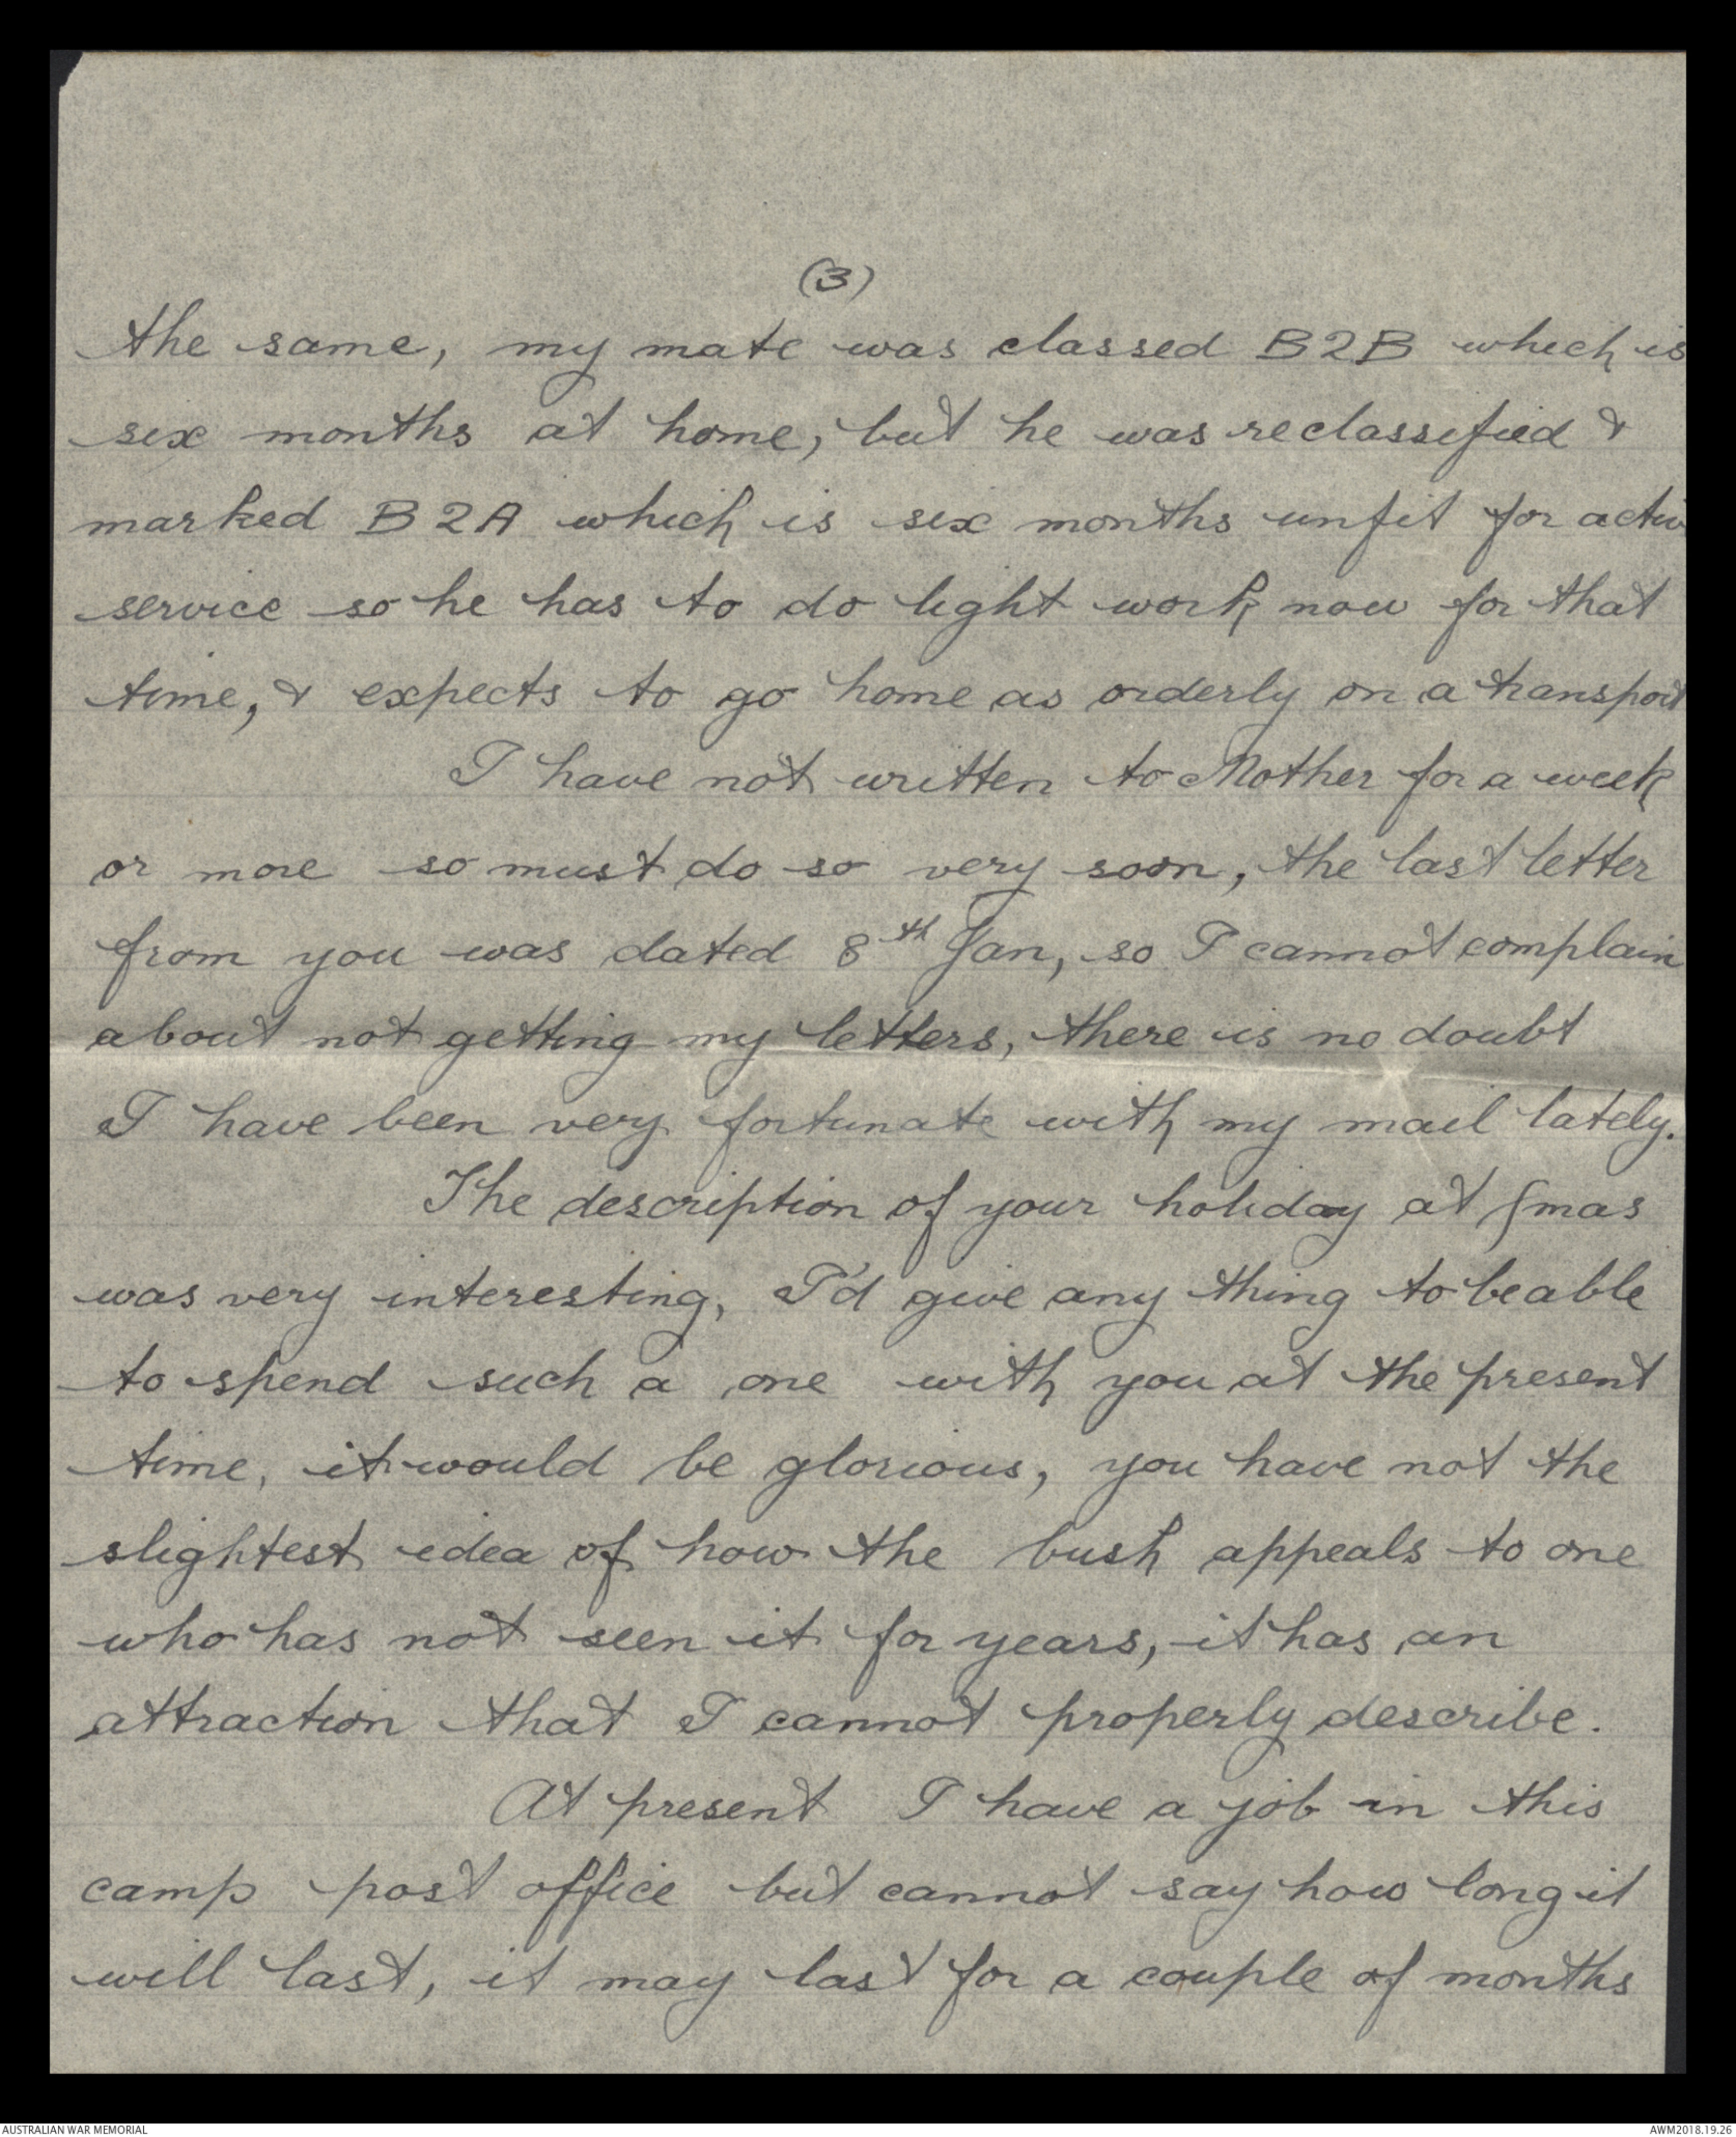 (3)
the same, my mate was classed B2B which is
six months at home, but he was reclassified &
marked B2A which is six months unfit for activ
service so he has to do light work now for that
time, & expects to go home as orderly on a transport
I have not written to Mother for a week
or more so must do so very soon, the last letter
from you was dated 8th Jan, so I cannot complain
about not getting my letters, there is no doubt
I have been very fortunate with my mail lately.
The description of your holiday at Xmas
was very interesting, I'd give any thing to be able
to spend such a one with you at the present
time, it would be glorious, you have not the
slightest idea of how the bush appeals to one
who has not seen it for years, it has an
attraction that I cannot properly describe.
At present I have a job in this
camp post office but cannot say how long it
will last, it may last for a couple of months
AUSTRALIAN WAR MEMORIAL
AWM2018.19.26